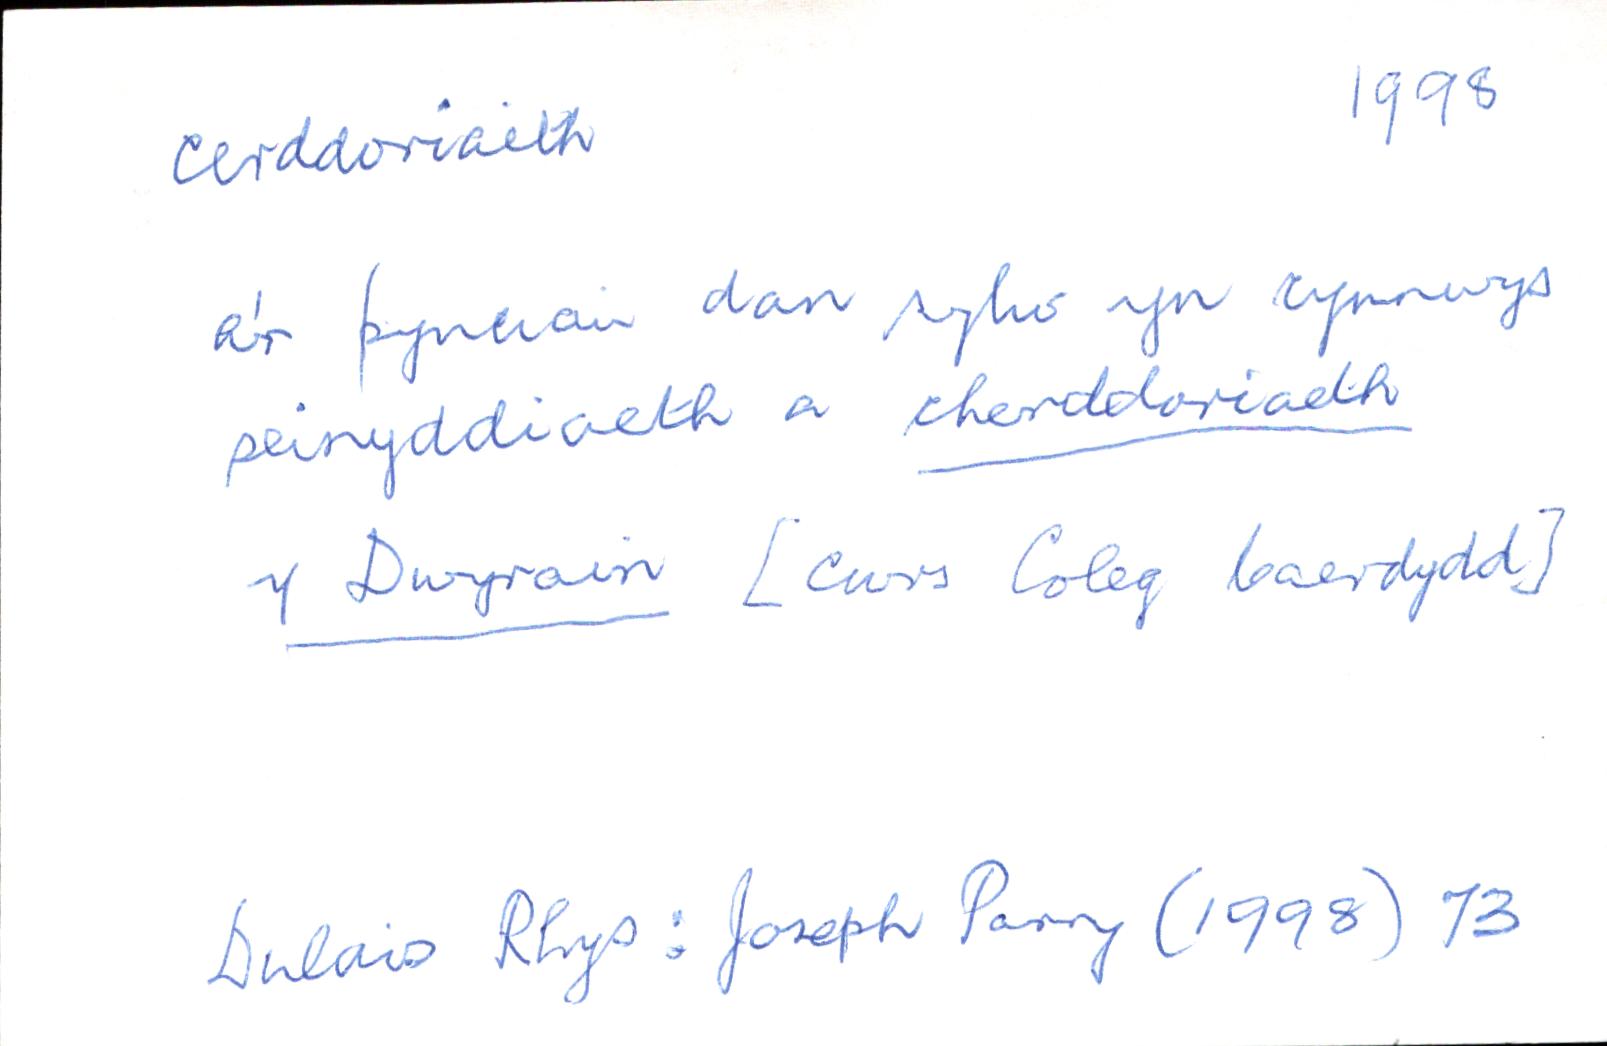 cerddoriaeth
1998
a'r pynciau dan sylw yn cynnwys
seinyddiaeth a cherddoriaeth
y Dwyrain [cwrs Coleg Caerdydd]
Dulais Rhys: Joseph Parry (1998) 73